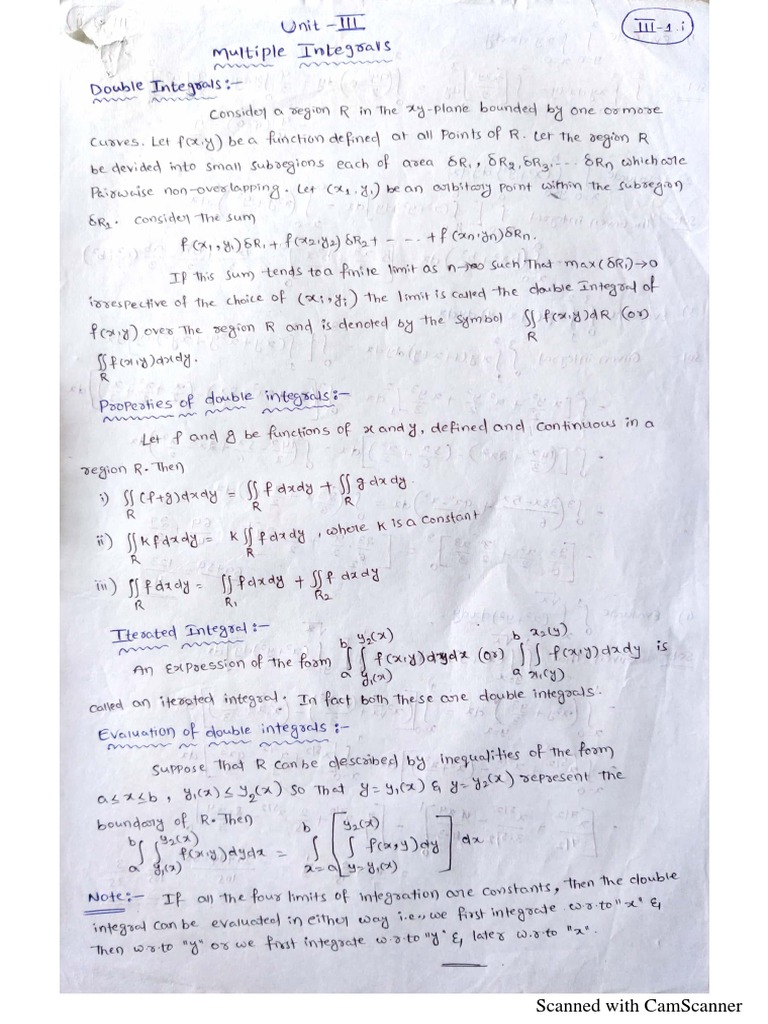 Unit - III
III-1.i
Multiple Integrals
Double Integrals:-
Consider a region R in the xy-plane bounded by one or more
curves. Let f(x,y) be a function defined at all points of R. Let the region R
be devided into small subregions each of area δR₁, δR₂, δR₃, .... δRn which are
Pairwaise non-overlapping. Let (x₁,y₁) be an arbitary point within the subregion
δR₁. Consider the sum
f(x₁,y₁)δR₁ + f(x₂,y₂)δR₂ + - .... + f(xn,yn)δRn.
If this sum tends to a finite limit as n→∞ such that max(δRi)→0
irrespective of the choice of (xi,yi) the limit is called the double Integral of
f(x,y) over the region R and is denoted by the symbol ∬_R f(x,y)dR (or)
∬_R f(x,y)dxdy.
Properties of double integrals:-
Let f and g be functions of x and y, defined and continuous in a
region R. Then
i) ∬_R (f+g)dxdy = ∬_R f dxdy + ∬_R g dxdy.
ii) ∬_R kf dxdy = k ∬_R f dxdy, where k is a constant
iii) ∬_R f dxdy = ∬_R₁ f dxdy + ∬_R₂ f dxdy
Iterated Integral:-
An Expression of the form ∫_a^b ∫_{y₁(x)}^{y₂(x)} f(x,y)dydx (or) ∫_a^b ∫_{x₁(y)}^{x₂(y)} f(x,y)dxdy is
called an iterated integral. In fact both these are double integrals.
Evaluation of double integrals:-
Suppose that R can be described by inequalities of the form
a≤x≤b, y₁(x) ≤ y₂(x) so that y=y₁(x) & y=y₂(x) represent the
boundary of R. Then
∫_a^b ∫_{y₁(x)}^{y₂(x)} f(x,y)dydx = ∫_{x=a}^b [∫_{y=y₁(x)}^{y₂(x)} f(x,y)dy] dx
Note:- If all the four limits of integration are constants, then the double
integral can be evaluated in either way i.e., we first integrate w.r.to "x" &
then w.r.to "y" or we first integrate w.r.to "y" & later w.r.to "x".
Scanned with CamScanner